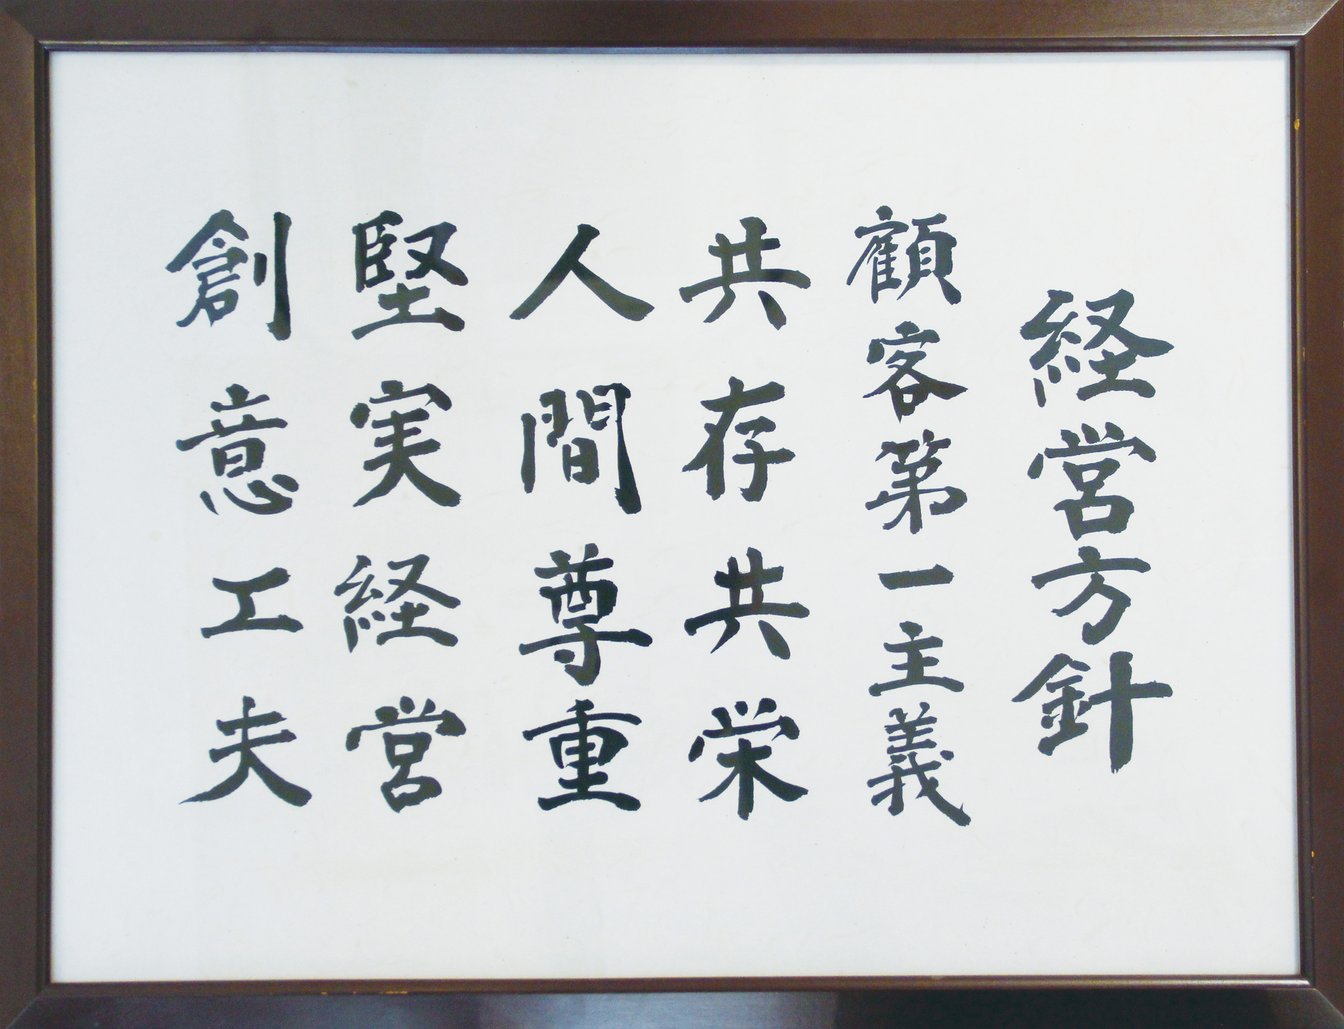 経営方針
顧客第一主義
共存共栄
人間尊重
堅実経営
創意工夫